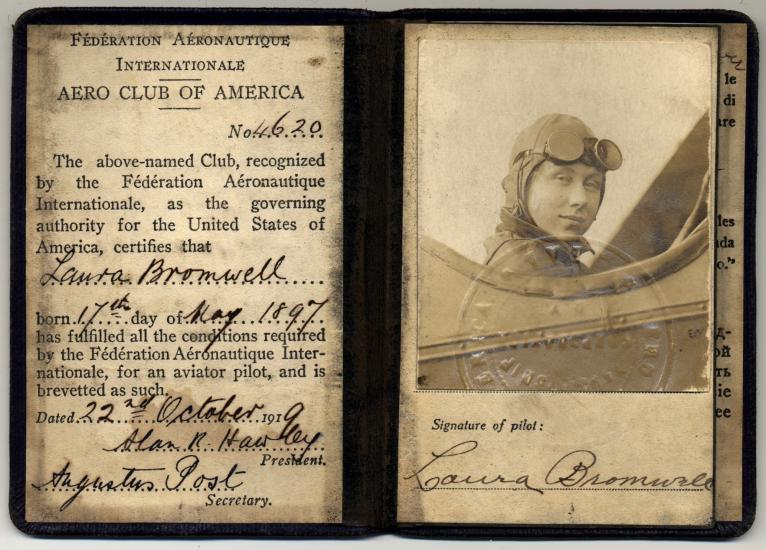 FÉDÉRATION AÉRONAUTIQUE
INTERNATIONALE
AERO CLUB OF AMERICA
No 4620
The above-named Club, recognized
by the Fédération Aéronautique
Internationale, as the governing
authority for the United States of
America, certifies that
Laura Bromwell
born 17th day of May 1897
has fulfilled all the conditions required
by the Fédération Aéronautique Inter-
nationale, for an aviator pilot, and is
brevetted as such.
Dated 22nd October 1919
Alan R. Hawley
President.
Augustus Post
Secretary.
Signature of pilot:
Laura Bromwell
le
di
les